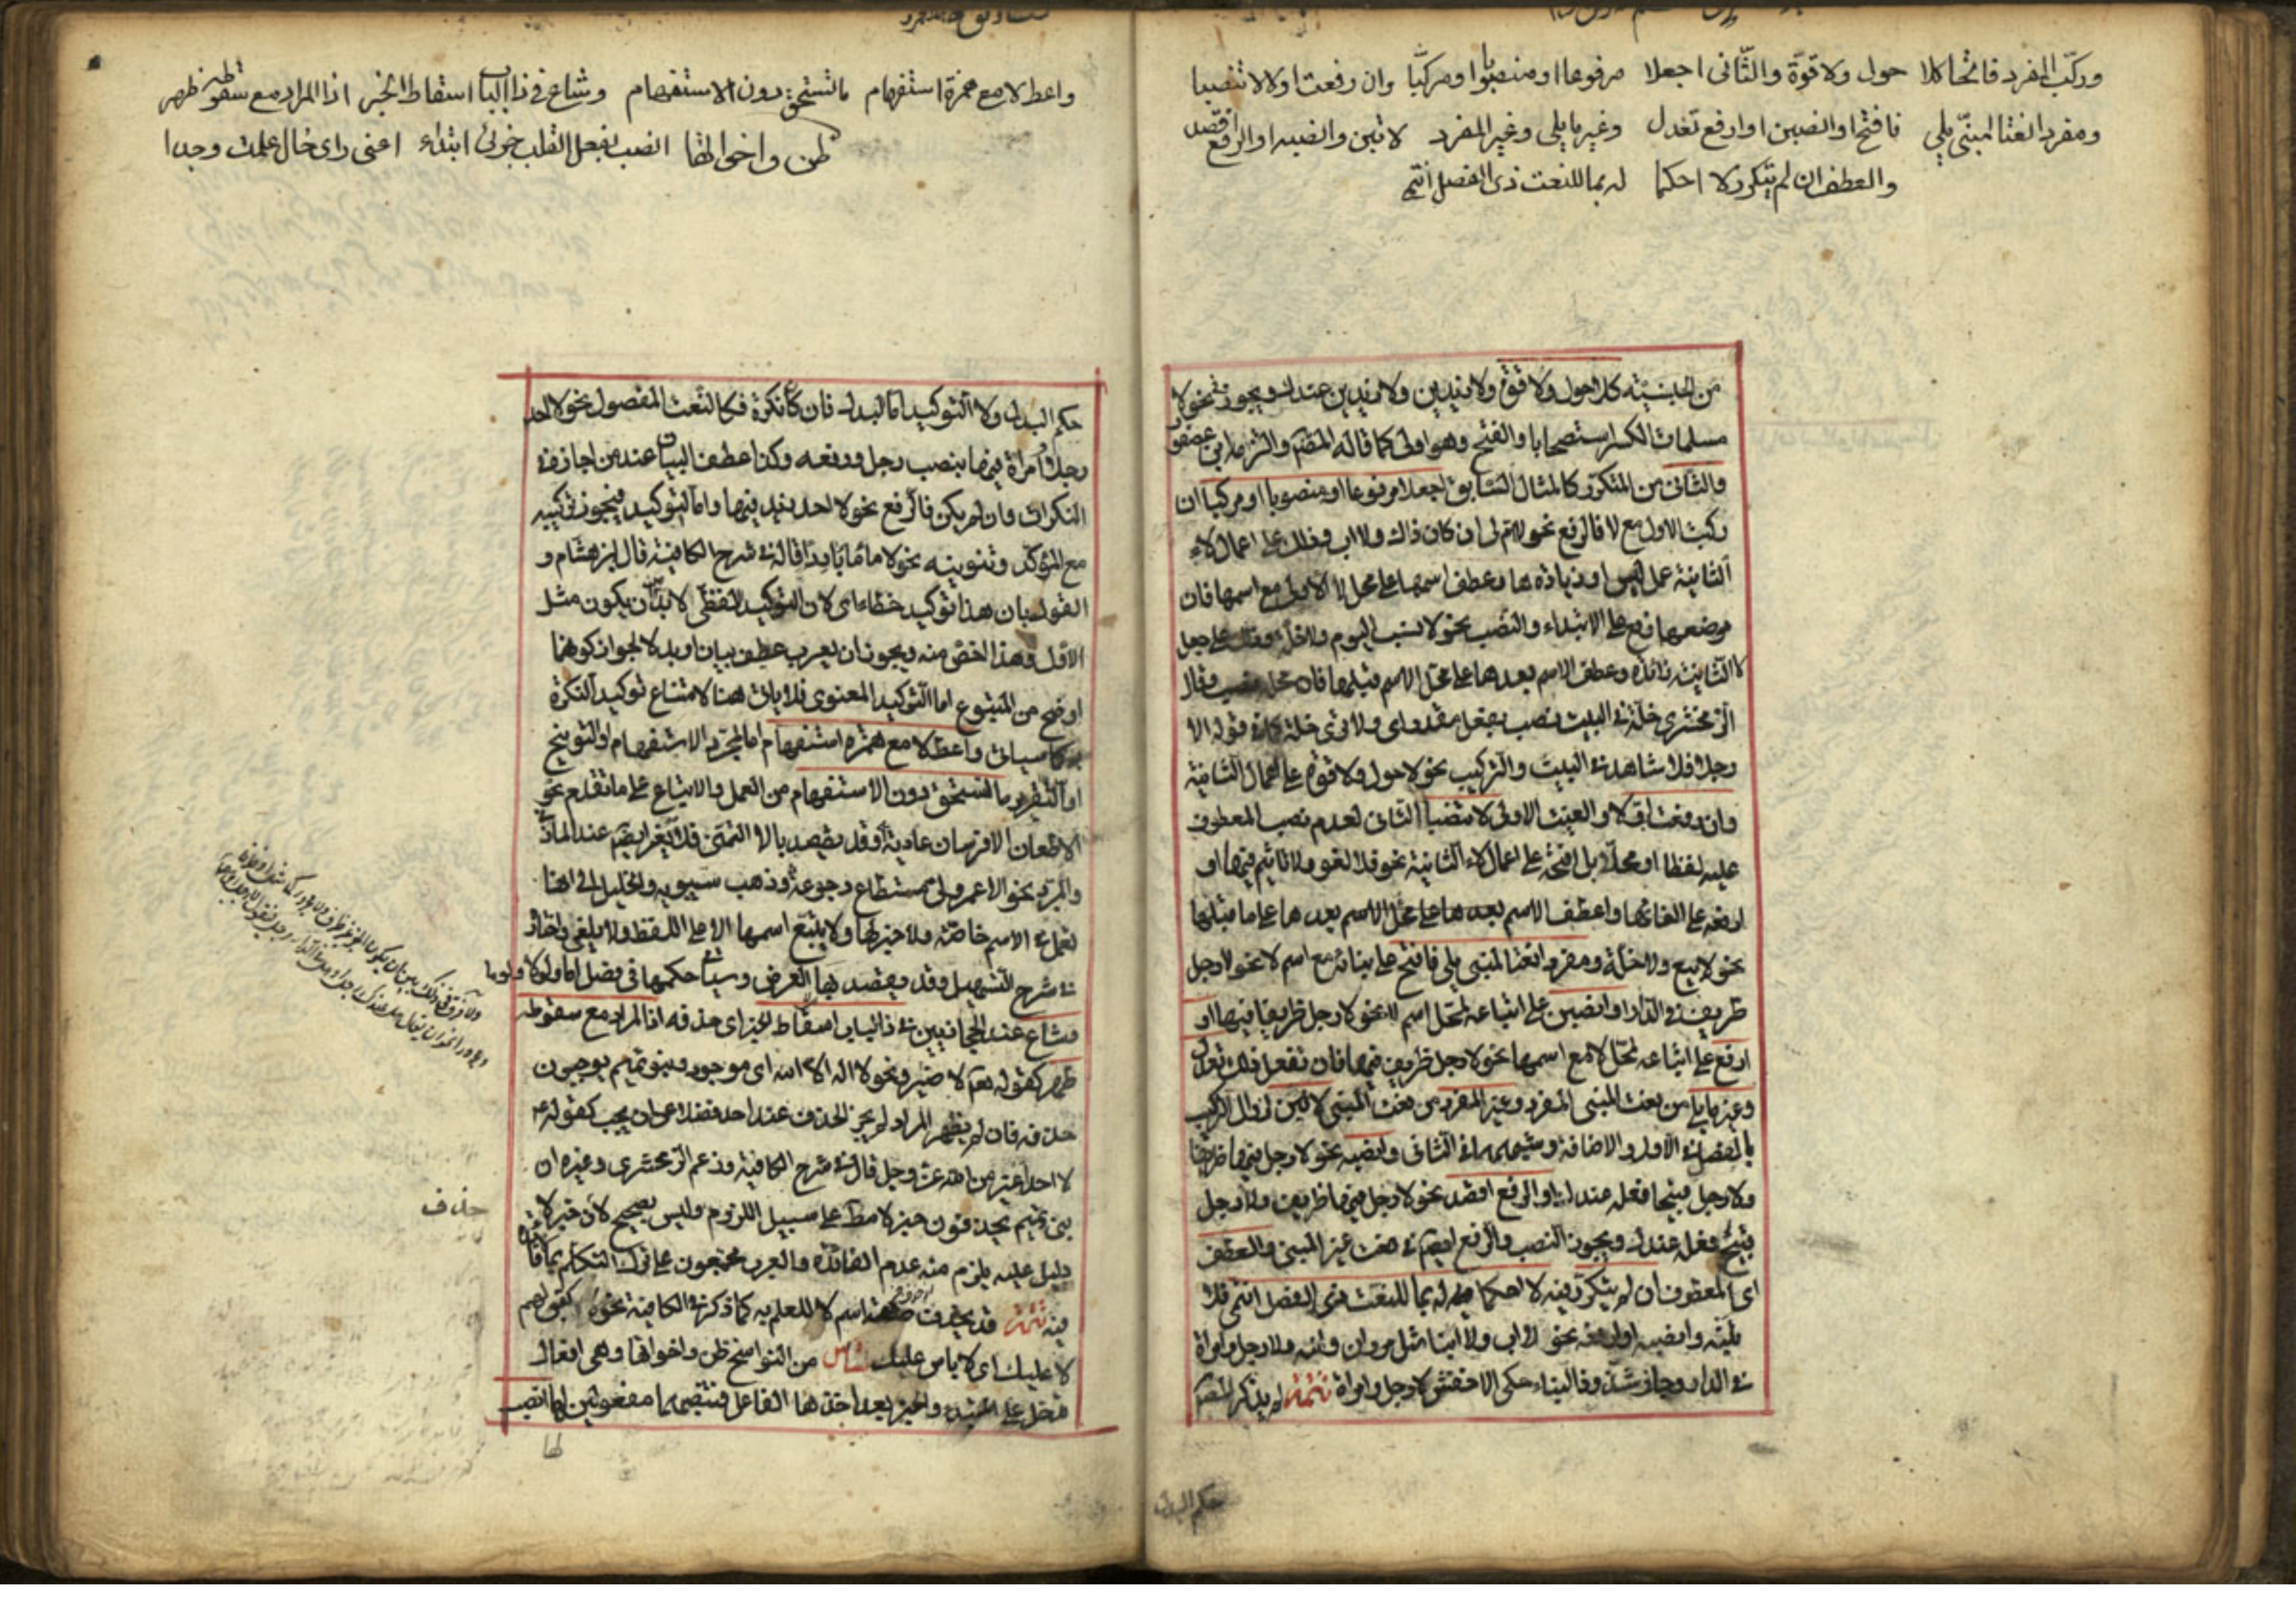 وركّب المفرد فاتحا كلا حول ولا قوّة والثّانى اجعلا مرفوعا او منصوبا او مركبّا وان رفعت اولا لا تنصبا
ومفردا نعتا لمبنىّ يلي فافتح او انصبن او ارفع تعدل وغير ما يلى وغير المفرد لا تبن وانصبه او الرفع اقصد
والعطف ان لم يتكرر لا احكما له بما للنعت ذى الفصل انتمى
من الجنسيّة كلا حول ولا قوّة ولا زيدين ولا زيدين عندك ويجوز فى نحو لا
مسلمات الكسر استصحابا والفتح وهو اولى كما قاله المصّ والتزمه ابن عصفور
والثّانى من المتكرّر كالمثال السّابق اجعلا مرفوعا او منصوبا او مركبا ان
ركبت الاول مع لا فالرفع نحو لا ام لى ان كان ذاك ولا اب وذلك على اعمال لاء
الثانية عمل ليس او زيادتها وعطف اسمها على محل لا الاولى مع اسمها فان
موضعهما رفع على الابتداء والنصب نحو لا نسب اليوم ولا خلّة وذلك على جعل
لا الثانية زائدة وعطف الاسم بعدها على محل الاسم قبلها فان محله نصب وقال
الزمخشرى خلّة فى البيت نصب بفعل مقدر اى ولا ترى خلّة كما فى قوله الا
رجلا فلا شاهد فى البيت والتركيب نحو لا حول ولا قوة على اعمال الثانية
وان رفعت اوّلا والغيت الاولى لا تنصبا الثانى لعدم نصب المعطوف
عليه لفظا او محلّا بل افتحه على اعمال لاء الثانية نحو فلا لغو ولا تاثيم فيها او
ارفعه على الغائها واعطف الاسم بعدها على محل الاسم بعدها على ما قبلها
نحو لا بيع ولا خلّة ومفردا نعتا لمبنى يلى فافتح على بنائه مع اسم لا نحو لا رجل
ظريف فى الدار او انصبن على اتباعه لمحل اسم لا نحو لا رجل ظريفا فيها او
ارفع على اتباعه لمحل لا مع اسمها نحو لا رجل ظريف فيها فان تفعل ذلك تعدل
وغير ما يلى من نعت المبنى المفرد وغير المفرد من نعت المبنى لا تبن لزوال التركيب
بالفصل فى الاول والاضافة وشبهها فى الثانى وانصبه نحو لا رجل فيها ظريفا
ولا رجل قبيحا فعله عندك او الرفع اقصد نحو لا رجل فيها ظريف ولا رجل
قبيح فعله عندك ويجوز النصب والرفع ايضا فى نعت غير المبنى والعطف
اى المعطوف ان لم يتكرر فيه لا احكما له بما للنعت ذى الفصل انتمى فلا
تبنه وانصبه او ارفعه نحو لا اب وابنا مثل مروان وابنه ولا رجل وامراة
فى الدار وجاز شذوذا البناء حكى الاخفش لا رجل وامراة تتمة لم يذكر المصّ
حكم البدل
واعط لا مع همزة استفهام ما تستحق دون الاستفهام وشاع فى ذا الباب اسقاط الخبر اذا المراد مع سقوطه ظهر
ظن واخواتها انصب بفعل القلب جزئى ابتداء اعنى راى خال علمت وجدا
حكم البدل ولا التوكيد اما البدل فان كان نكرة فكالنعت المفصول نحو لا احد
رجلا وامراة فيها بنصب رجل ورفعه وكذا عطف البيان عند من اجازه فى
النكرات وان لم يكن فالرفع نحو لا احد زيد فيها واما التوكيد فيجوز تركيبه
مع المؤكد وتنوينه نحو لا ماء ماء باردا قاله فى شرح الكافية قال ابن هشام و
القول بان هذا توكيد خطاء اى لان التوكيد اللفظى لا بد ان يكون مثل
الاول وهذا اخص منه ويجوز ان يعرب عطف بيان او بدلا لجواز كونهما
اوضح من المتبوع اما التوكيد المعنوى فلا ياتى هنا لامتناع توكيد النكرة
كما سياتى واعط لا مع همزة استفهام اما لمجرد الاستفهام او التوبيخ
او التقرير ما تستحق دون الاستفهام من العمل والاتباع على ما تقدم نحو
الا طعان الا فرسان عادية وقد يقصد بالا التمنى فلا تغير ايضا عند المازنى
والمبرد نحو الا عمر ولى مستطاع رجوعه وذهب سيبويه والخليل الى انها
تعمل فى الاسم خاصّة ولا خبر لها ولا يتبع اسمها الا على اللفظ ولا يلغى واختاره
فى شرح التسهيل وقد يقصد بها العرض وسياتى حكمها فى فصل اما ولولا ولوما
وشاع عند الحجازيين فى ذا الباب اسقاط الخبر اى حذفه اذا المراد مع سقوطه
ظهر كقوله تعالى لا ضير ونحو لا اله الا الله اى موجود وبنو تميم يوجبون
حذفه فان لم يظهر المراد لم يجز الحذف عند احد فضلا عن ان يجب كقوله ع
لا احد اغير من الله عز وجل قال فى شرح الكافية وزعم الزمخشرى وغيره ان
بنى تميم يحذفون خبر لا مط على سبيل اللزوم وليس بصحيح لان خبر لا
دليل عليه يلزم منه عدم الفائدة والعرب مجمعون على ترك التكلم بما لا فائدة
فيه تتمة قد يحذف اسم لا للعلم به كما ذكر فى الكافية نحو كقولهم
لا عليك اى لا باس عليك من النواسخ ظن واخواتها وهى افعال
تدخل على المبتداء والخبر بعد اخذها الفاعل فتنصبهما مفعولين لها انصب
حذف
لها